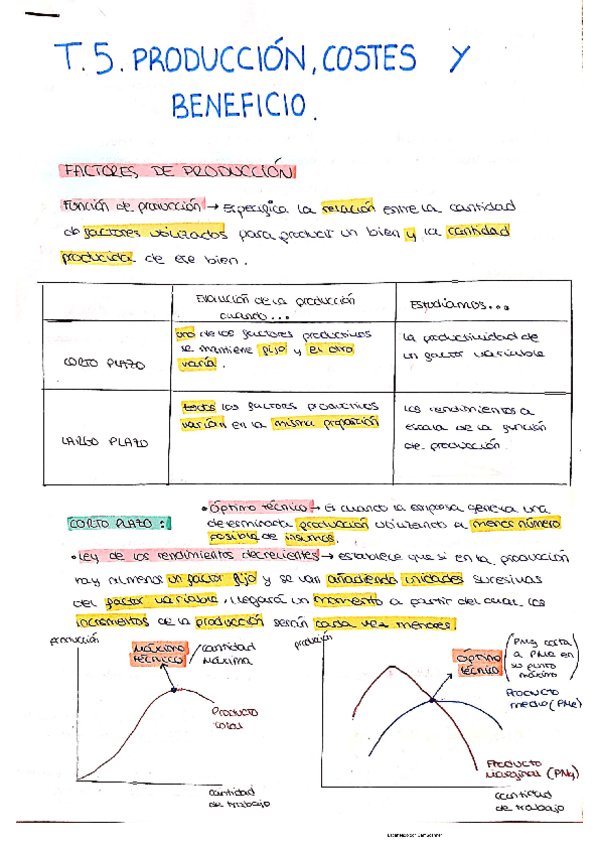 T.5. PRODUCCIÓN, COSTES Y
BENEFICIO.
FACTORES DE PRODUCCIÓN
Función de producción → Especifica la relación entre la cantidad
de factores utilizados para producir un bien y la cantidad
producida de ese bien.
Evolución de la producción
cuando...
Estudiamos...
CORTO PLAZO
uno de los factores productivos
se mantiene fijo y el otro
varía.
la productividad de
un factor variable
LARGO PLAZO
todos los factores productivos
varían en la misma proporción
los rendimientos a
escala de la función
de producción
CORTO PLAZO:
• Óptimo técnico → Es cuando la empresa genera una
determinada producción utilizando el menor número
posible de insumos.
• Ley de los rendimientos decrecientes → establece que si en la producción
hay al menos un factor fijo y se van añadiendo unidades sucesivas
del factor variable, llegará un momento a partir del cual los
incrementos de la producción serán cada vez menores.
producción
MÁXIMO
TÉCNICO
cantidad
máxima
Producto
total
cantidad
de trabajo
producción
ÓPTIMO
TÉCNICO
PMg corta
a PMe en
su punto
máximo
Producto
medio (PMe)
Producto
marginal (PMg)
cantidad
de trabajo